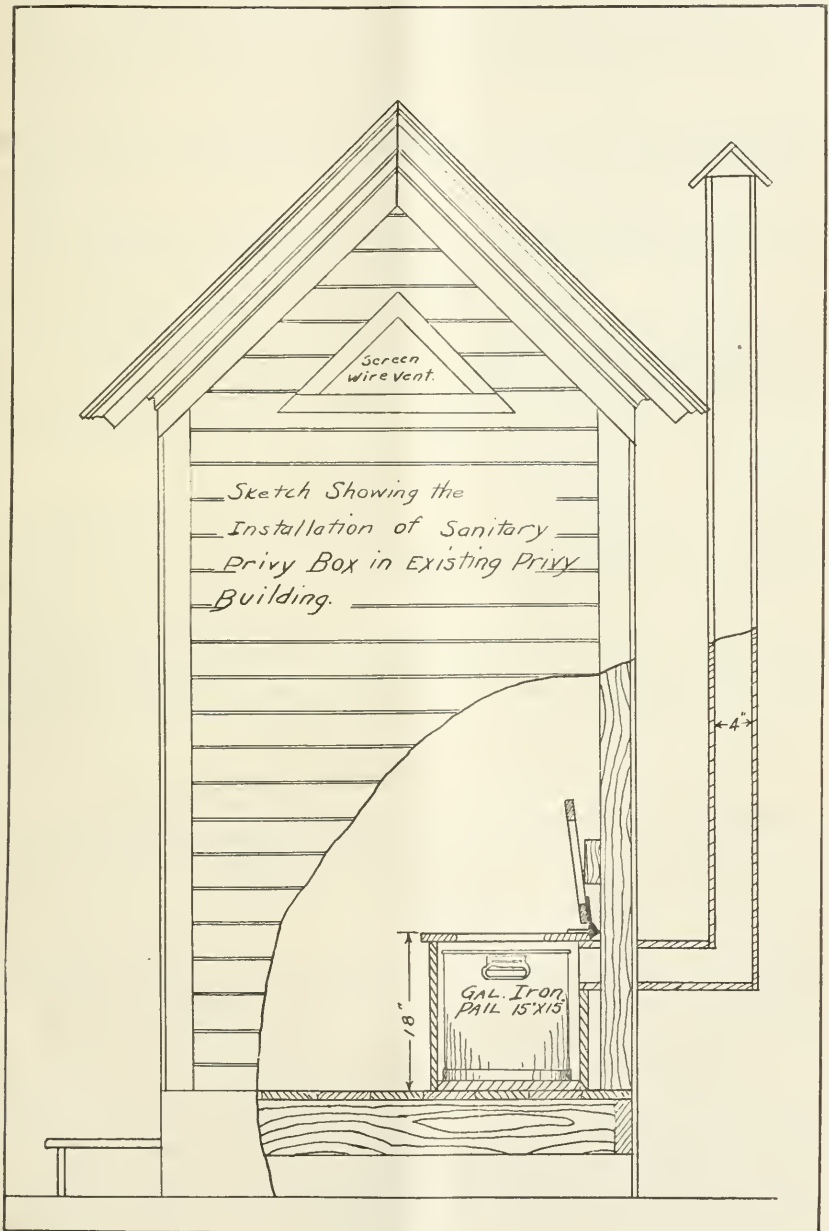 Screen
Wire Vent.
Sketch Showing the
Installation of Sanitary
Privy Box in Existing Privy
Building.
4"
18"
GAL. Iron
PAIL 15"X15"